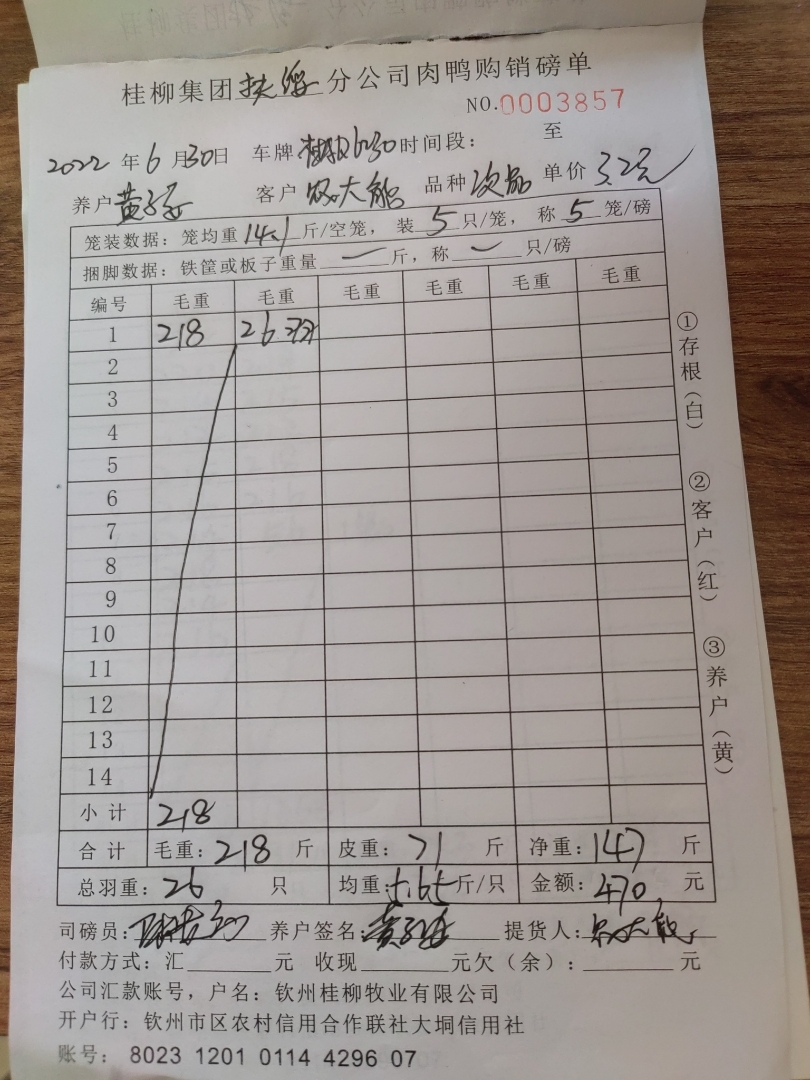 桂柳集团扶绥分公司肉鸭购销磅单
NO.0003857
2022年6月30日 车牌:桂 6230 时间段: 至
养户 黄 客户 农大能 品种 次品 单价 3.2元
笼装数据：笼均重14.1斤/空笼，装5只/笼，称5笼/磅
捆脚数据：铁筐或板子重量 — 斤，称 — 只/磅
编号 毛重 毛重 毛重 毛重 毛重 毛重
1 218 26羽
2
3
4
5
6
7
8
9
10
11
12
13
14
小计 218
合计 毛重：218斤 皮重：71斤 净重：147斤
总羽重：26只 均重：5.65斤/只 金额：470元
司磅员: 养户签名: 黄 提货人: 农大能
付款方式：汇 元 收现 元欠（余）: 元
公司汇款账号，户名：钦州桂柳牧业有限公司
开户行：钦州市区农村信用合作联社大垌信用社
账号: 8023 1201 0114 4296 07
①存根（白）
②客户（红）
③养户（黄）